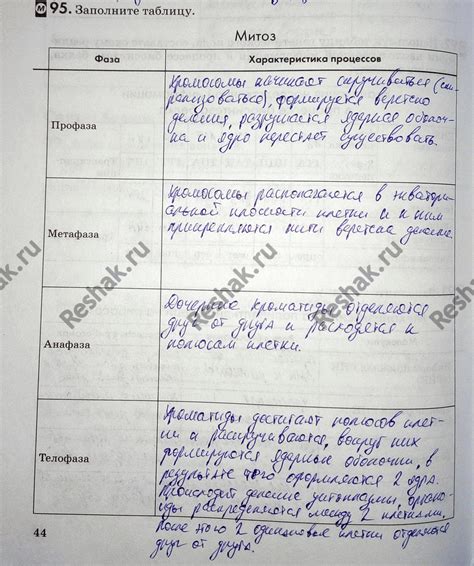 95. Заполните таблицу.
Митоз
Фаза Характеристика процессов
Профаза
Хромосомы начинают скручиваться (спи-
рализоваться), формируется веретено
деления, разрушается ядерная оболоч-
ка и ядро перестает существовать.
Метафаза
Хромосомы располагаются в экватори-
альной плоскости клетки и к ним
прикрепляются нити веретена деления.
Анафаза
Дочерние хроматиды отделяются
друг от друга и расходятся к
полюсам клетки.
Телофаза
Хроматиды достигают полюсов клет-
ки и раскручиваются, вокруг них
формируются ядерные оболочки, в
результате чего оформляются 2 ядра.
Происходит деление цитоплазмы, органо-
иды распределяются между 2 клетками,
после чего 2 одинаковые клетки отделяются
друг от друга.
44
Reshak.ru
Reshak.ru
Reshak.ru